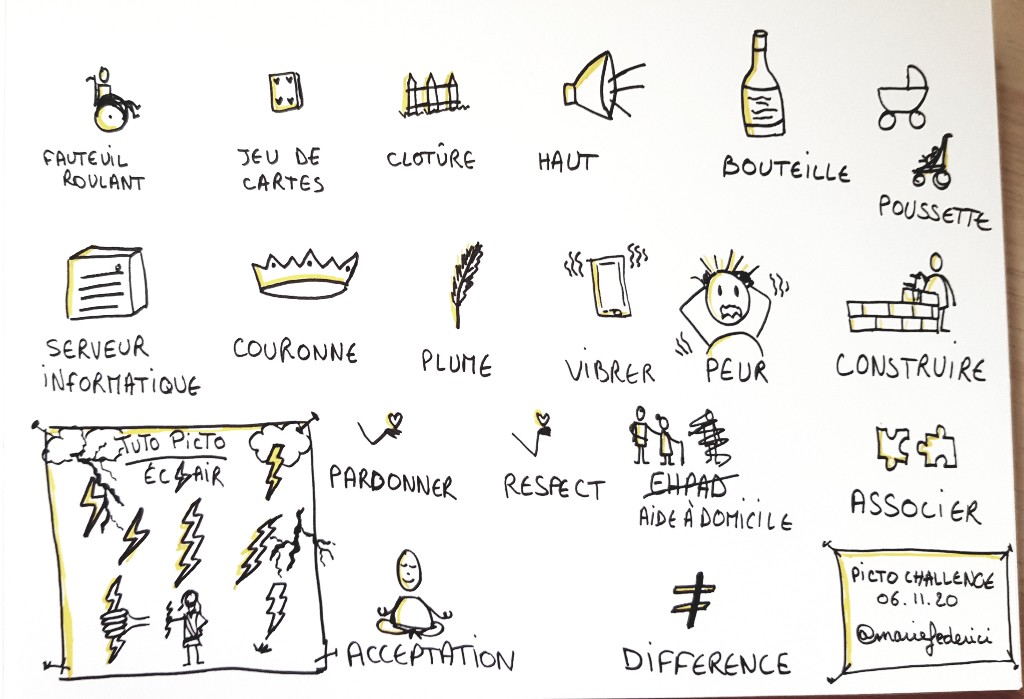 FAUTEUIL
ROULANT
JEU DE
CARTES
CLOTÛRE
HAUT
BOUTEILLE
POUSSETTE
SERVEUR
INFORMATIQUE
COURONNE
PLUME
VIBRER
PEUR
CONSTRUIRE
TUTO PICTO
ÉCLAIR
PARDONNER
RESPECT
EHPAD
AIDE À DOMICILE
ASSOCIER
ACCEPTATION
≠
DIFFERENCE
PICTO CHALLENGE
06.11.20
@mariefederici